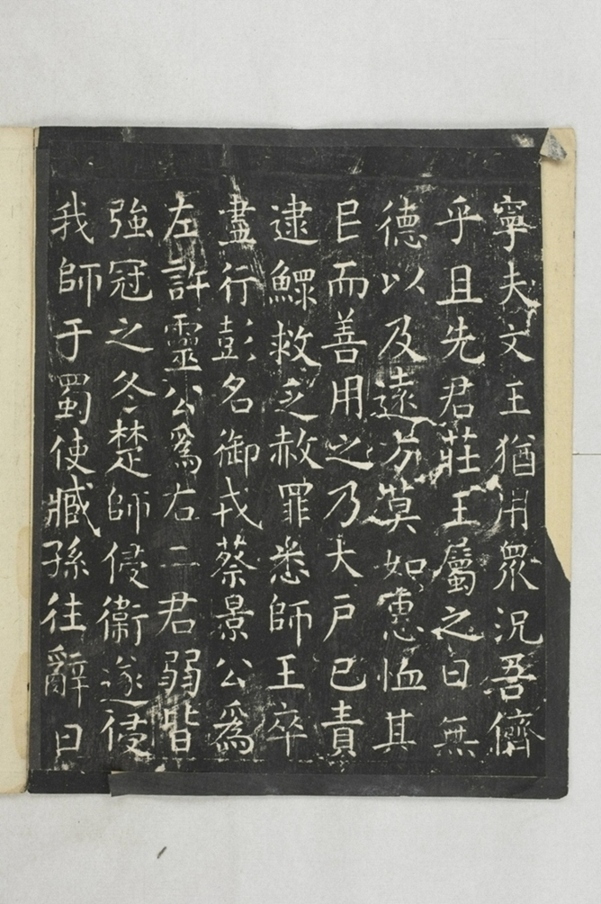 寧夫文王猶用衆況吾儕
乎且先君莊王屬之曰無
德以及遠方莫如惠恤其
民而善用之乃大戶已責
逮鰥救乏赦罪悉師王卒
盡行彭名御戎蔡景公爲
左許靈公爲右二君弱皆
強冠之冬楚師侵衛遂侵
我師于蜀使臧孫往辭曰